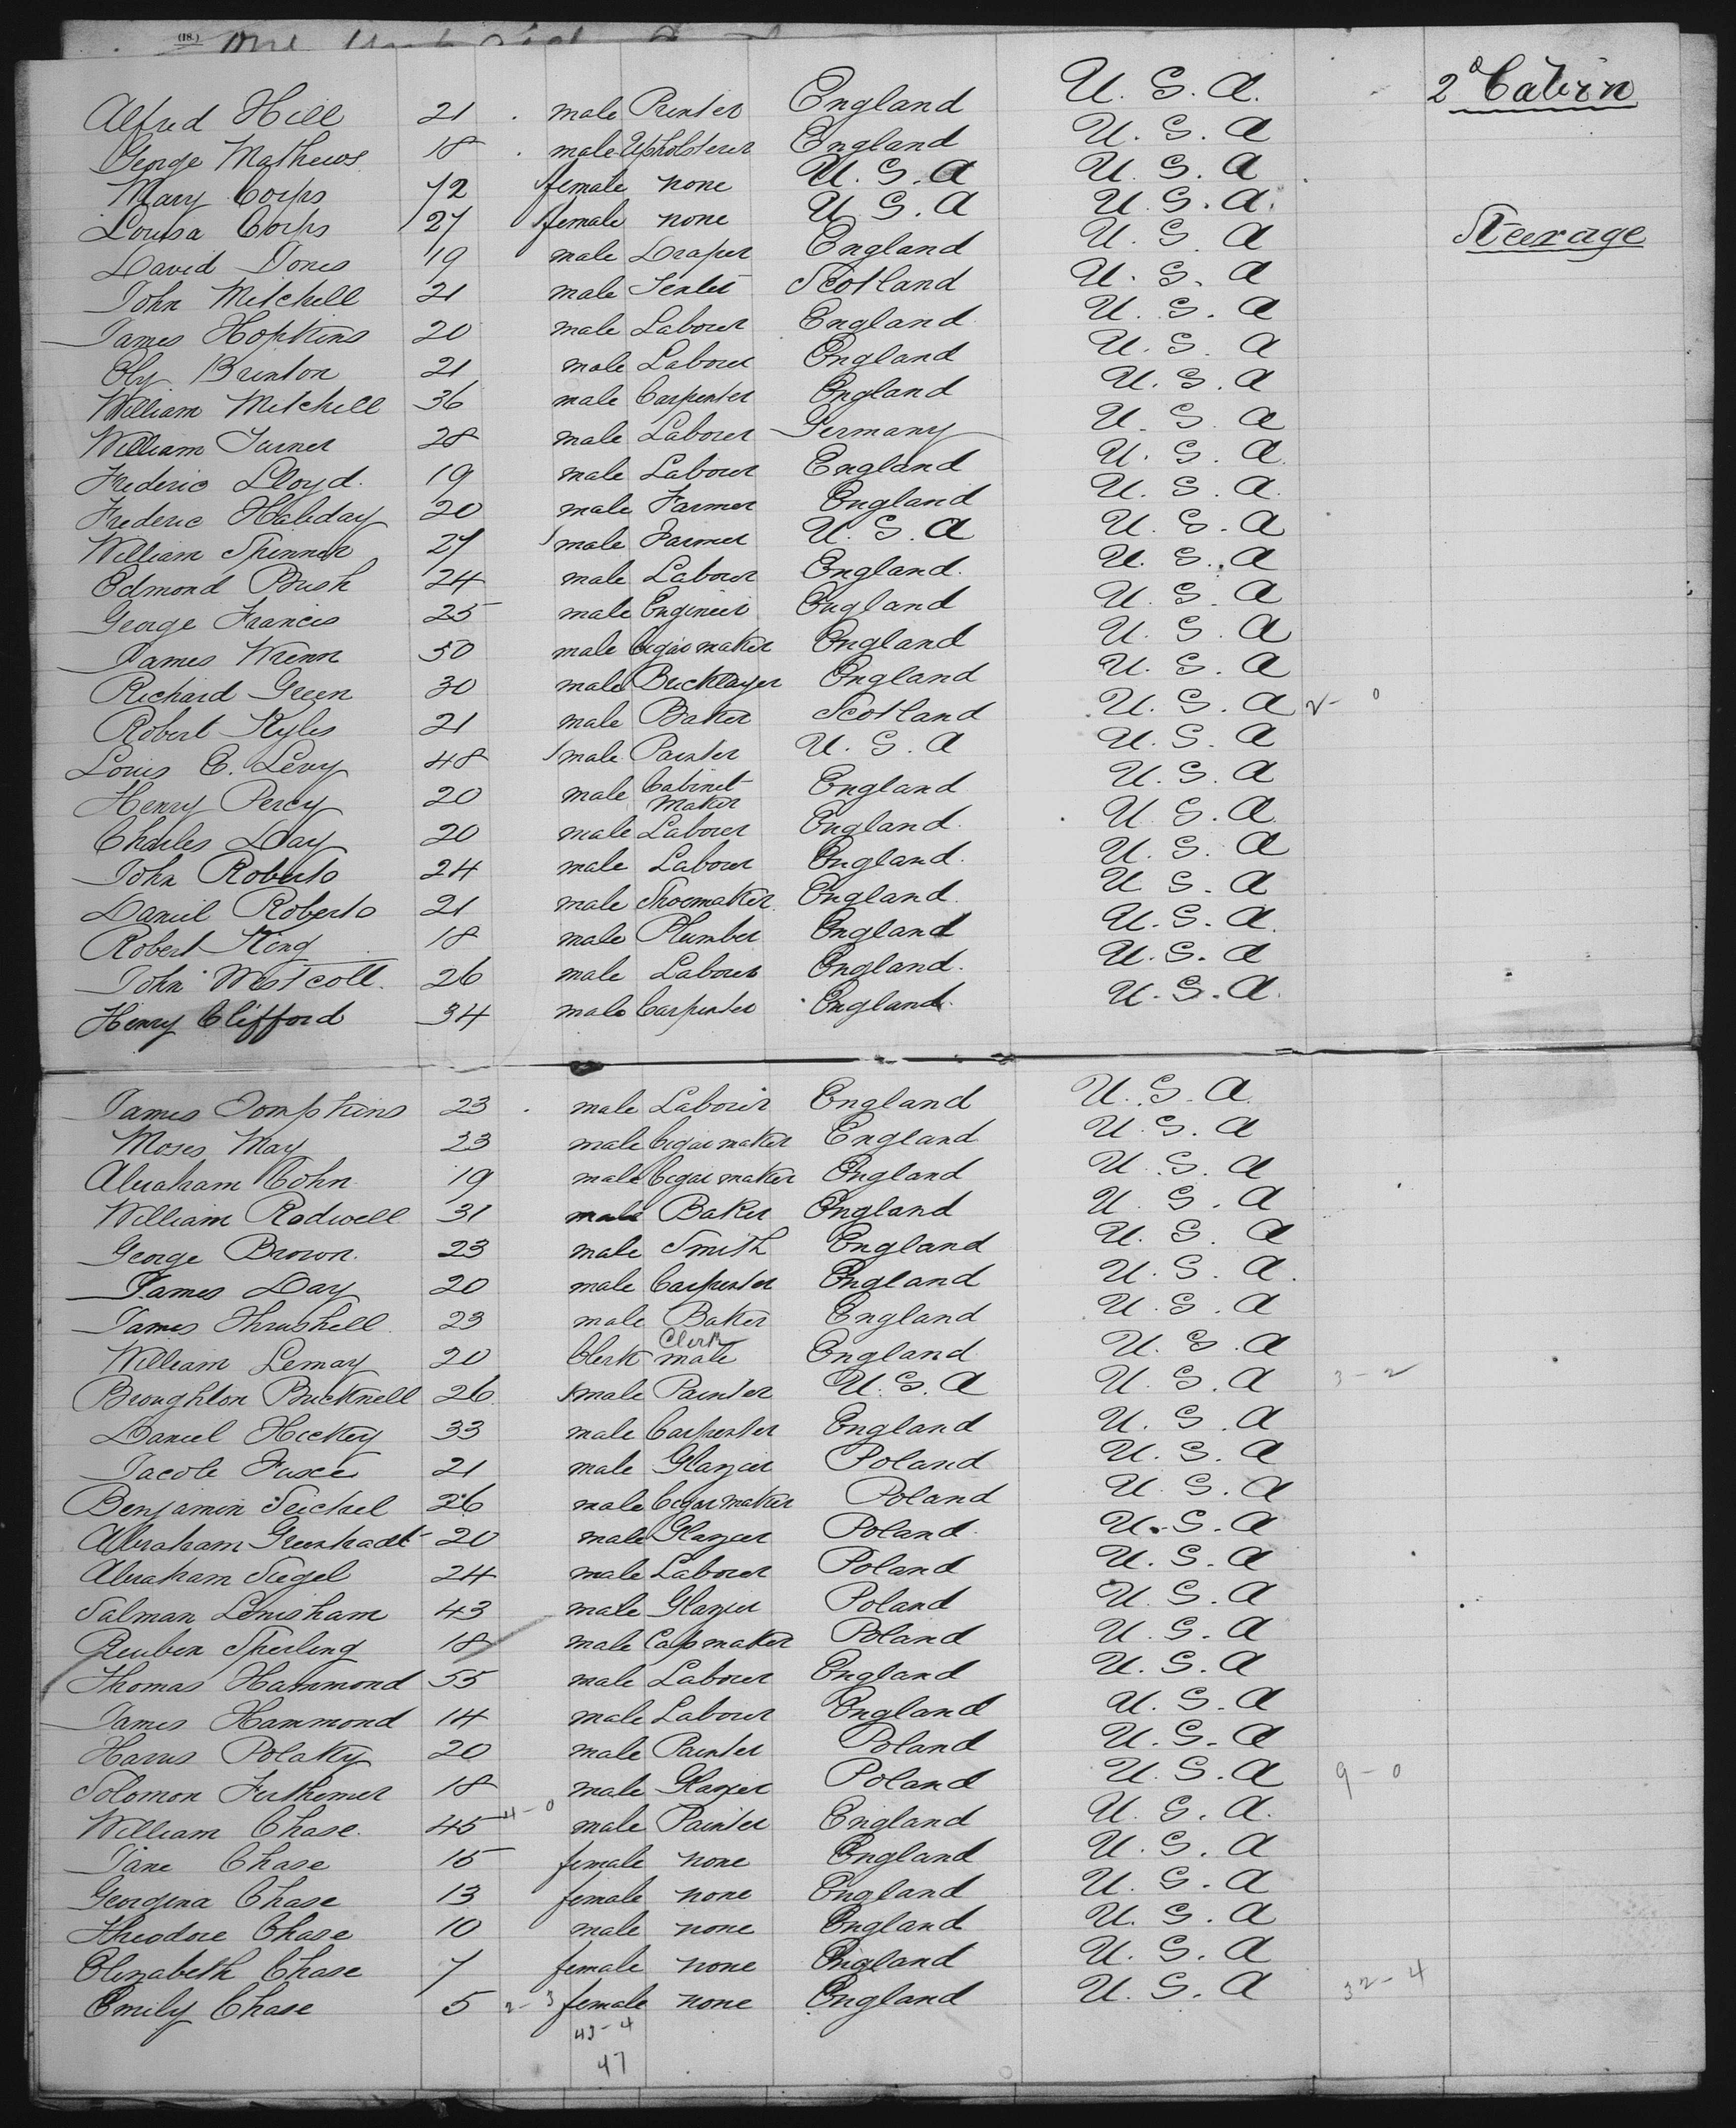 (18.)
Alfred Hill 21 male Printer England U. S. A. 2d Cabin
George Mathews 18 male Upholsterer England U. S. A
Mary Corps 72 female none U. S. A U. S. A
Louisa Corps 27 female none U. S. A U. S. A. Steerage
David Jones 19 male Draper England U. S. A
John Mitchell 21 male England Scotland U. S. A
James Hopkins 20 male Laborer England U. S. A
Ely Brinton 21 male Laborer England U. S. A
William Mitchell 36 male Carpenter England U. S. A
William Turner 28 male Laborer Germany U. S. A
Frederic Lloyd. 19 male Laborer England U. S. A.
Frederic Haliday 20 male Farmer England U. S. A.
William Skinner 27 male Farmer U. S. A U. S. A
Edmond Bush 24 male Laborer England. U. S. A
George Francis 25 male Engineer England U. S. A
James Wrenn 50 male Cigar maker England U. S. A
Richard Green 30 male Bricklayer England U. S. A
Robert Kyles 21 male Baker Scotland U. S. A 2 - 0
Louis C. Levy 48 male Painter U. S. A U. S. A
Henry Percy 20 male Cabinet maker England U. S. A
Charles Day 20 male Laborer England. U. S. A
John Roberts 24 male Laborer England. U. S. A
Daniel Roberts 21 male Shoemaker England. U. S. A
Robert King 18 male Plumber England U. S. A.
John Westcott. 26 male Laborer England. U. S. A
Henry Clifford 34 male Carpenter England. U. S. A.
James Tompkins 23 male Laborer England U. S. A.
Moses May 23 male Cigar maker England U. S. A
Abraham Cohn 19 male Cigar maker England U. S. A
William Rodwell 31 male Baker England U. S. A
George Brown. 23 male Smith England U. S. A
James Day 20 male Carpenter England U. S. A.
James Thrushell 23 male Baker England U. S. A
William Lemay 20 Clerk Clerk male England U. S. A
Broughton Bucknell 26 male Painter U. S. A U. S. A 3 - 2
Daniel Hickey 33 male Carpenter England U. S. A
Jacob 21 male Glazier Poland U. S. A
Benjamin Seichel 26 male Cigar maker Poland U. S. A
Abraham 20 male Glazier Poland. U. S. A
Abraham Siegel 24 male Laborer Poland U. S. A
Salman 43 male Glazier Poland U. S. A
Reuben Sperling 18 male Cap maker Poland U. S. A
Thomas Hammond 55 male Laborer England U. S. A
James Hammond 14 male Laborer England U. S. A
Harris Polaky 20 male Painter Poland U. S. A
Solomon 18 male Glazier Poland U. S. A 9 - 0
William Chase. 45 4 - 0 male Painter England U. S. A.
Jane Chase 15 female none England U. S. A
Georgina Chase 13 female none England U. S. A
Theodore Chase 10 male none England U. S. A
Elizabeth Chase 7 female none England U. S. A
Emily Chase 5 2 - 3 female none England U. S. A 32 - 4
43 - 4
47